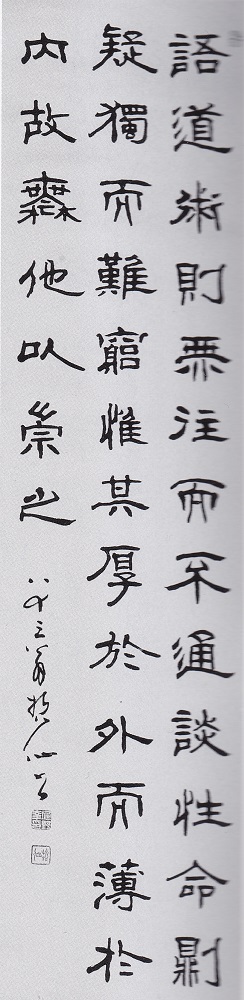 語道術則無往而不通談性命則
疑獨而難窮惟其厚於外而薄於
内故橆他以崇之
八十三翁